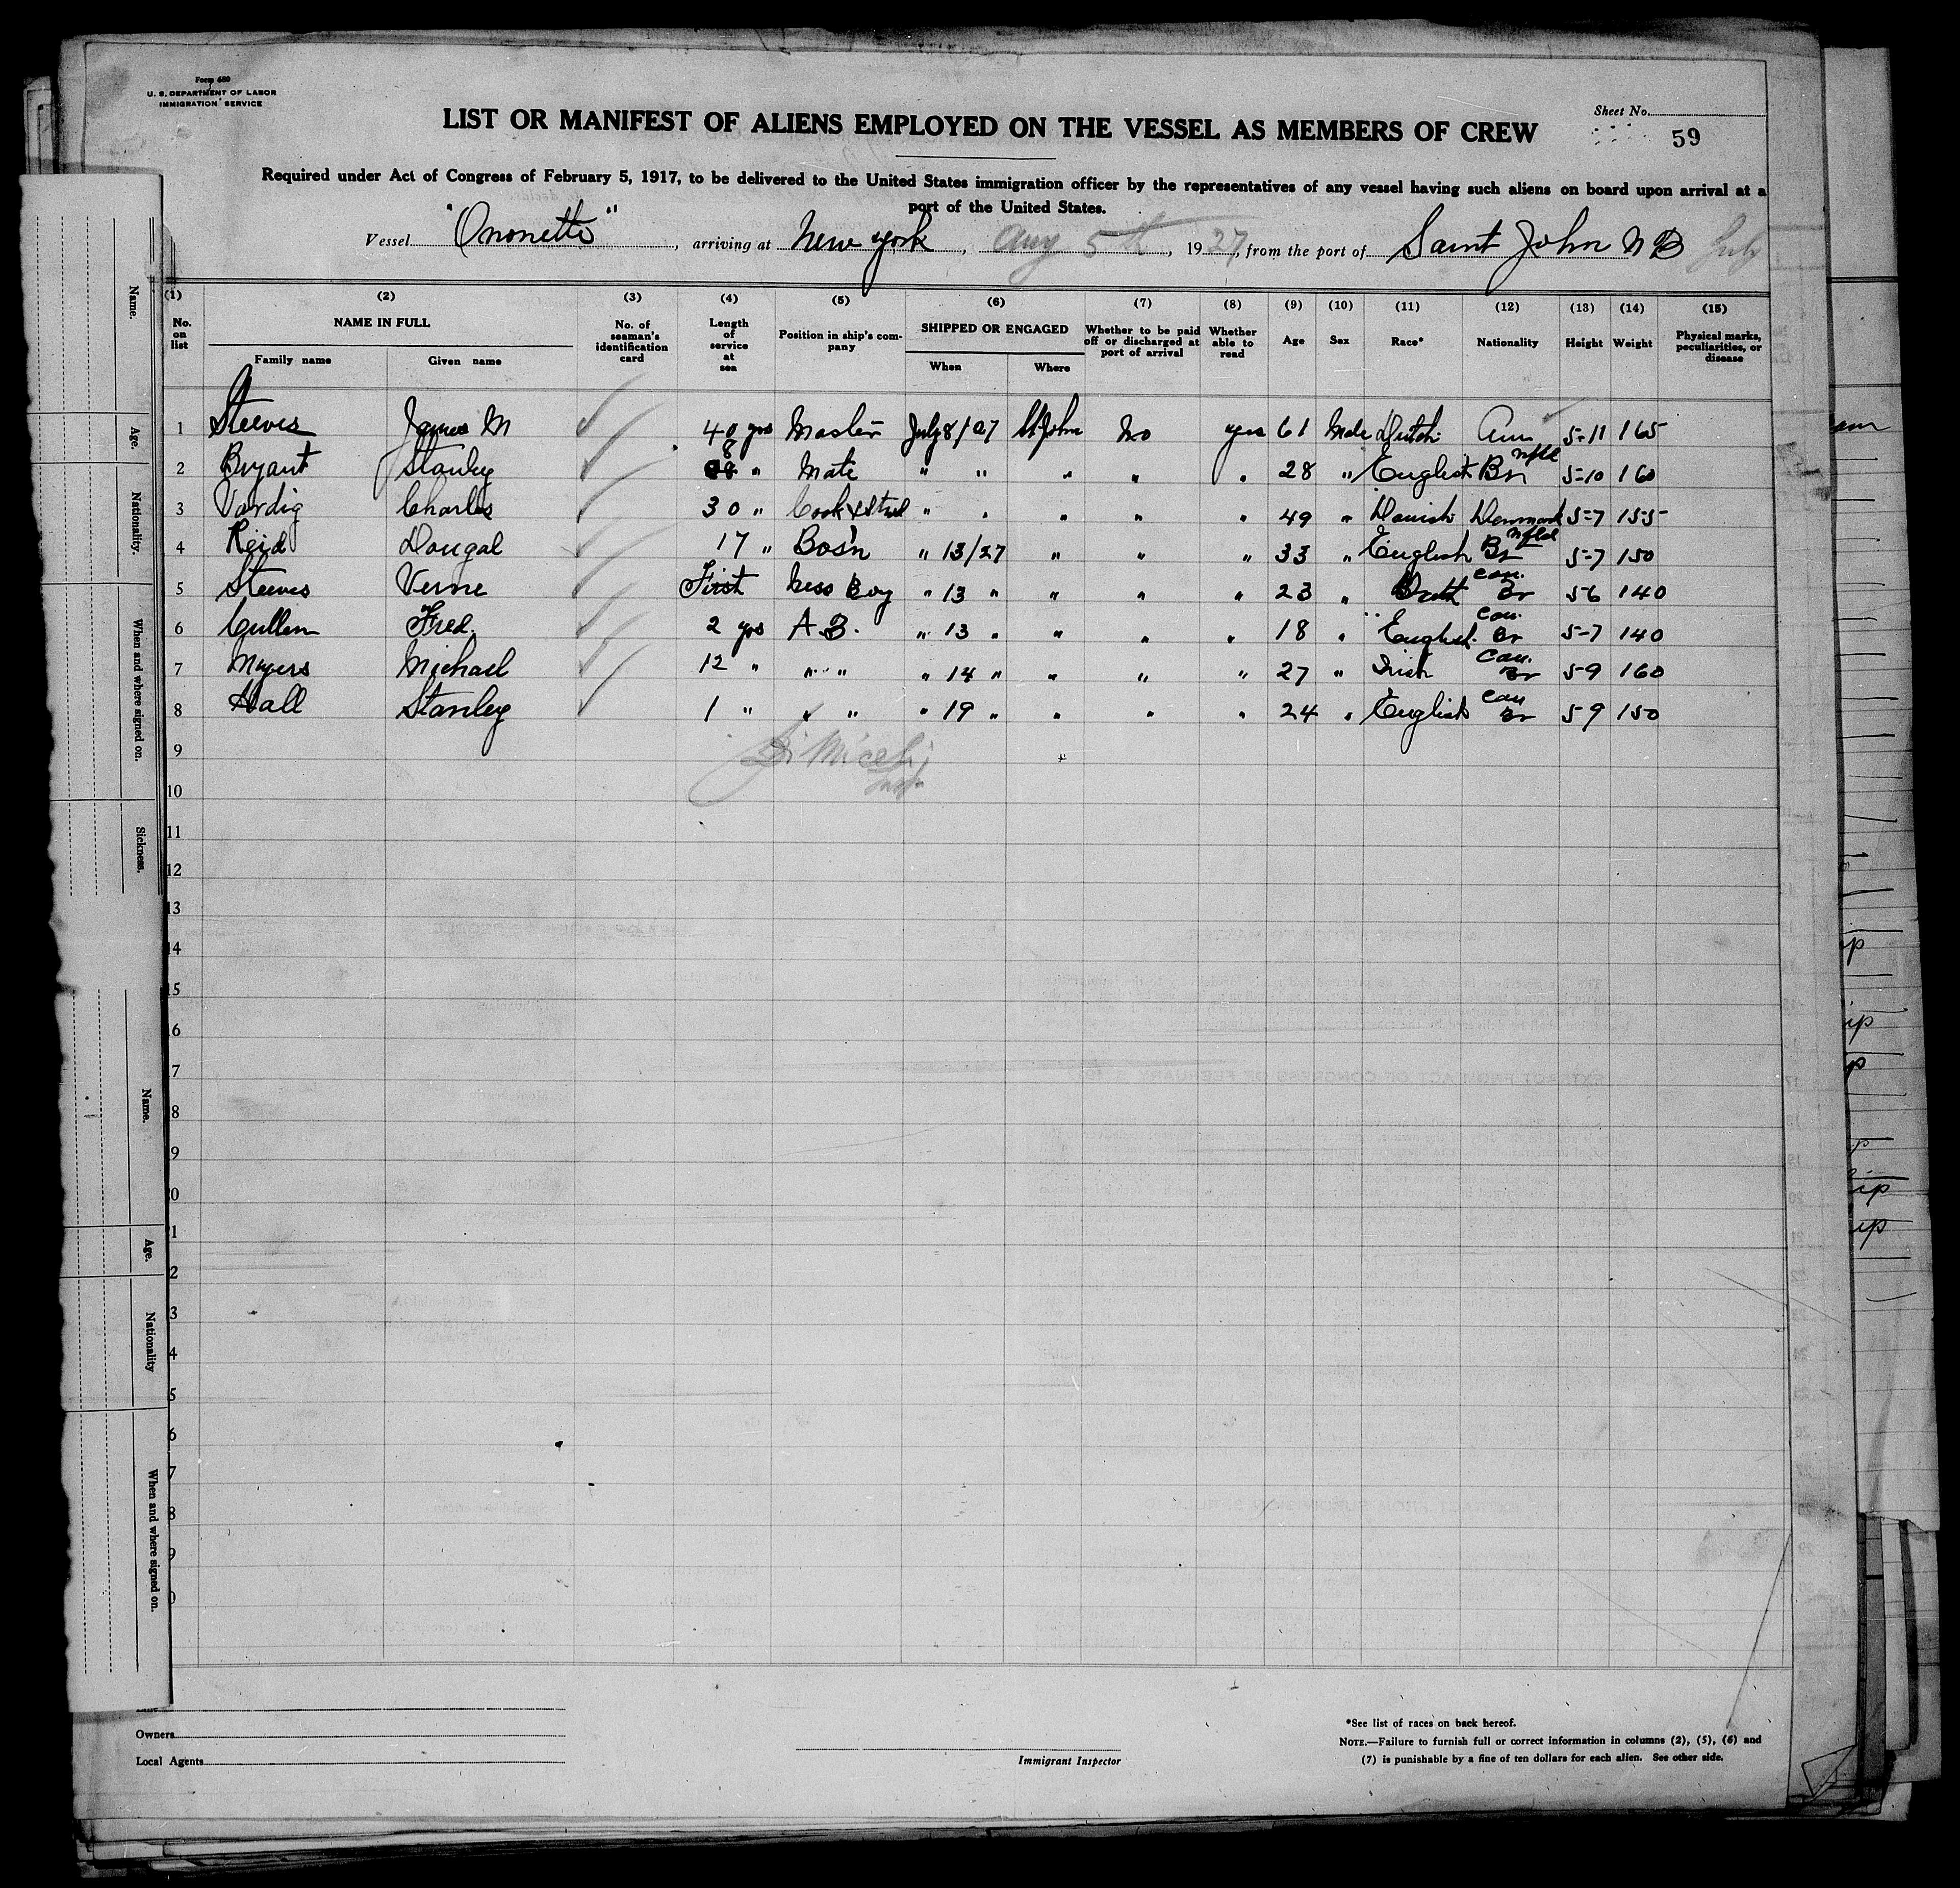 Form 680
U. S. DEPARTMENT OF LABOR
IMMIGRATION SERVICE
Sheet No.
59
LIST OR MANIFEST OF ALIENS EMPLOYED ON THE VESSEL AS MEMBERS OF CREW
Required under Act of Congress of February 5, 1917, to be delivered to the United States immigration officer by the representatives of any vessel having such aliens on board upon arrival at a
port of the United States.
Vessel "Ononette", arriving at New York, Aug 5th, 1927, from the port of Saint John N B July
(1) (2) (3) (4) (5) (6) (7) (8) (9) (10) (11) (12) (13) (14) (15)
No. on list NAME IN FULL Family name Given name No. of seaman's identification card Length of service at sea Position in ship's company SHIPPED OR ENGAGED When Where Whether to be paid off or discharged at port of arrival Whether able to read Age Sex Race* Nationality Height Weight Physical marks, peculiarities, or disease
1 Steeves James M 40 yrs Master July 8/27 St John No yes 61 Male Dutch Am 5-11 165
2 Bryant Stanley 8 " Mate " " " " " 28 " English Br Nfld 5-10 160
3 Vardig Charles 30 " Cook & Stwd " " " " " 49 " Danish Denmark 5-7 155
4 Reid Dougal 17 " Bos'n " 13/27 " " " 33 " English Br Nfld 5-7 150
5 Steeves Verne First Mess Boy " 13 " " " " 23 " Can. Br 5-6 140
6 Cullen Fred. 2 yrs A.B. " 13 " " " " 18 " English. Can. Br 5-7 140
7 Myers Michael 12 " " " " 14 " " " " 27 " Irish Can. Br 5-9 160
8 Hall Stanley 1 " " " " 19 " " " " 24 " English Can Br 5-9 150
9
10
11
12
13
14
15
16
7
8
9
0
1
2
3
4
5
6
7
8
9
0
Name.
Age.
Nationality.
When and where signed on.
Sickness.
Name.
Age.
Nationality
When and where signed on.
Owners
Local Agents
Immigrant Inspector
*See list of races on back hereof.
NOTE.—Failure to furnish full or correct information in columns (2), (5), (6) and
(7) is punishable by a fine of ten dollars for each alien. See other side.